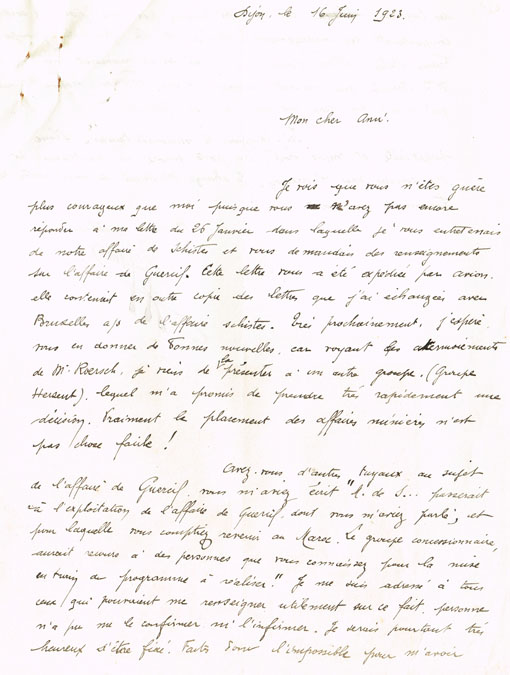 Dijon le 16 Juin 1923.
Mon cher Ami.
Je vois que vous n'êtes guère
plus courageux que moi puisque vous n'avez pas encore
répondu à ma lettre du 26 Janvier dans laquelle je vous entretenais
de notre affaire de schistes et vous demandais des renseignements
sur l'affaire de Guercif. Cette lettre vous a été expédiée par avion.
elle contenait en outre copie des lettres que j'ai échangées avec
Bruxelles a/s de l'affaire schistes. Très prochainement, j'espère
vous en donner de bonnes nouvelles, car voyant les atermoiements
de Mr Roersch, je viens de la présenter à un autre groupe, (Groupe
Hersent), lequel m'a promis de prendre très rapidement une
décision. Vraiment le placement des affaires minières n'est
pas chose facile !
Avez-vous d'autres tuyaux au sujet
de l'affaire de Guercif vous m'aviez écrit "l. de S... passerait
à l'exploitation de l'affaire de Guercif dont vous m'aviez parlé, et
pour laquelle vous comptiez revenir au Maroc. Le groupe concessionnaire,
aurait recours à des personnes que vous connaissez pour la mise
en train du programme à réaliser." Je me suis adressé à tous
ceux qui pouvaient me renseigner utilement sur ce fait, personne
n'a pu me le confirmer ni l'infirmer. Je serais pourtant très
heureux d'être fixé. Faites donc l'impossible pour m'avoir